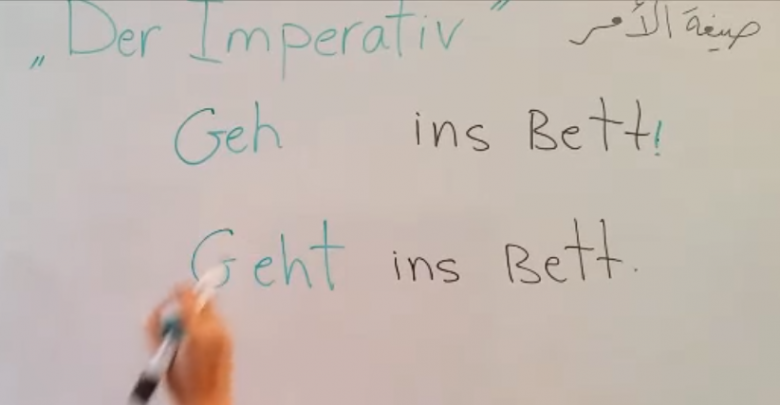 „Der Imperativ" صيغة الأمر
Geh ins Bett!
Geht ins Bett.